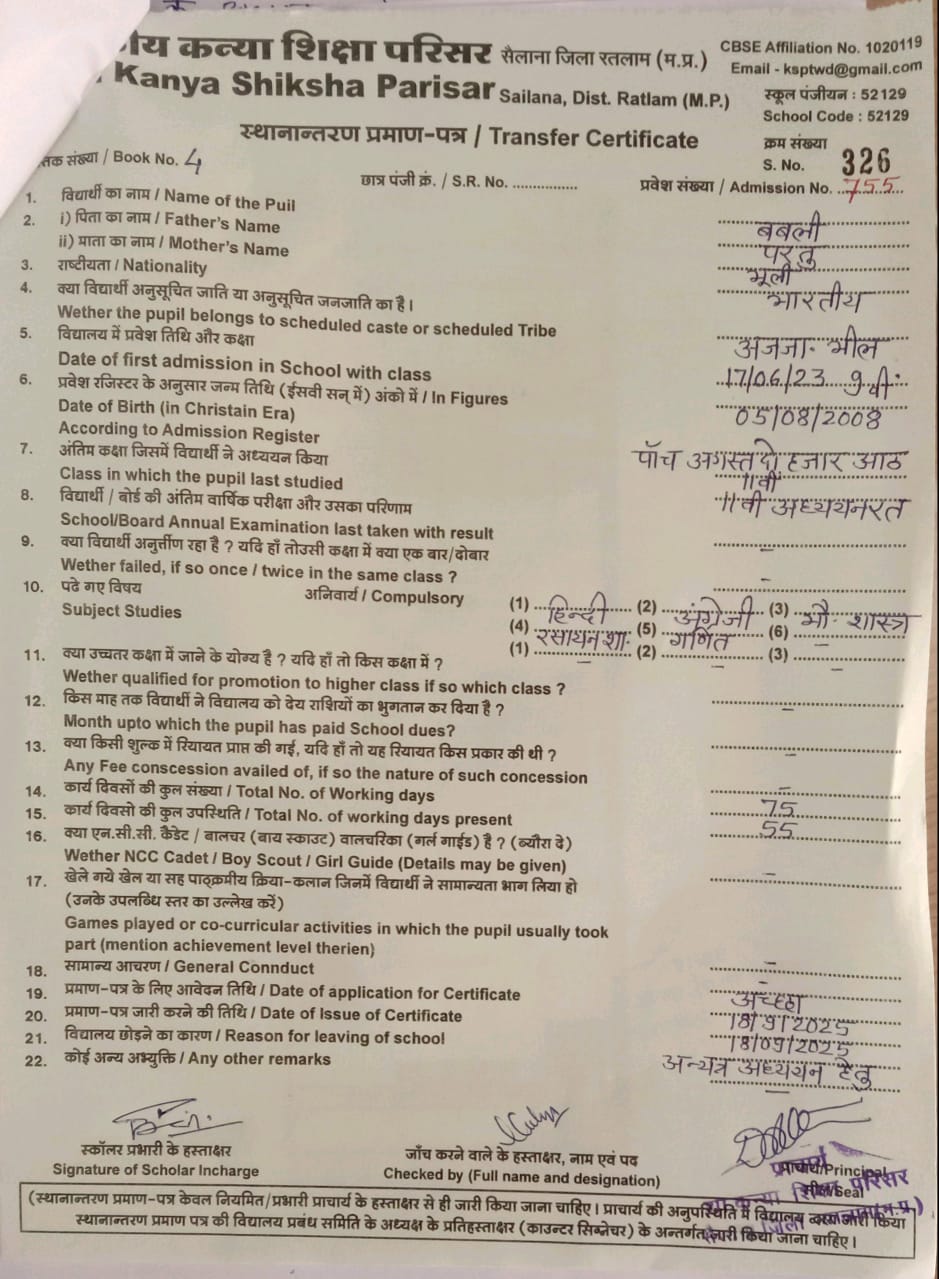 ीय कन्या शिक्षा परिसर सैलाना जिला रतलाम (म.प्र.) CBSE Affiliation No. 1020119
Kanya Shiksha Parisar Sailana, Dist. Ratlam (M.P.) Email - ksptwd@gmail.com
स्कूल पंजीयन : 52129
School Code : 52129
स्थानान्तरण प्रमाण-पत्र / Transfer Certificate
क्रम संख्या
तक संख्या / Book No. 4 S. No. 326
छात्र पंजी क्रं. / S.R. No. ................ प्रवेश संख्या / Admission No. ..755...
1. विद्यार्थी का नाम / Name of the Puil बबली
2. i) पिता का नाम / Father's Name परतु
ii) माता का नाम / Mother's Name भूली
3. राष्टीयता / Nationality भारतीय
4. क्या विद्यार्थी अनुसूचित जाति या अनुसूचित जनजाति का है।
Wether the pupil belongs to scheduled caste or scheduled Tribe अजजा. भील
5. विद्यालय में प्रवेश तिथि और कक्षा
Date of first admission in School with class 17/06/23 9वी
6. प्रवेश रजिस्टर के अनुसार जन्म तिथि (ईसवी सन् में) अंको में / In Figures 05/08/2008
Date of Birth (in Christain Era)
According to Admission Register पॉच अगस्त दो हजार आठ
7. अंतिम कक्षा जिसमें विद्यार्थी ने अध्ययन किया
Class in which the pupil last studied 11वी
8. विद्यार्थी / बोर्ड की अंतिम वार्षिक परीक्षा और उसका परिणाम 11वी अध्ययनरत
School/Board Annual Examination last taken with result
9. क्या विद्यार्थी अनुर्त्तीण रहा है ? यदि हाँ तोउसी कक्षा में क्या एक बार/दोबार –
Wether failed, if so once / twice in the same class ? –
10. पढे गए विषय अनिवार्य / Compulsory (1) हिन्दी (2) अंग्रेजी (3) भौ. शास्त्र
Subject Studies (4) रसायन शा. (5) गणित (6) –
(1) – (2) – (3) –
11. क्या उच्चतर कक्षा में जाने के योग्य है ? यदि हाँ तो किस कक्षा में ?
Wether qualified for promotion to higher class if so which class ? –
12. किस माह तक विद्यार्थी ने विद्यालय को देय राशियों का भुगतान कर दिया है ?
Month upto which the pupil has paid School dues? –
13. क्या किसी शुल्क में रियायत प्राप्त की गई, यदि हाँ तो यह रियायत किस प्रकार की थी ?
Any Fee conscession availed of, if so the nature of such concession –
14. कार्य दिवसों की कुल संख्या / Total No. of Working days 75
15. कार्य दिवसो की कुल उपस्थिति / Total No. of working days present 55
16. क्या एन.सी.सी. कैडेट / बालचर (बाय स्काउट) वालचरिका (गर्ल गाईड) है ? (ब्यौरा दे)
Wether NCC Cadet / Boy Scout / Girl Guide (Details may be given) –
17. खेले गये खेल या सह पाठ्क्रमीय क्रिया-कलान जिनमें विद्यार्थी ने सामान्यता भाग लिया हो
(उनके उपलब्धि स्तर का उल्लेख करें)
Games played or co-curricular activities in which the pupil usually took
part (mention achievement level therien) –
18. सामान्य आचरण / General Connduct अच्छा
19. प्रमाण-पत्र के लिए आवेदन तिथि / Date of application for Certificate 18/9/2025
20. प्रमाण-पत्र जारी करने की तिथि / Date of Issue of Certificate 18/09/2025
21. विद्यालय छोड़ने का कारण / Reason for leaving of school अन्यत्र अध्ययन हेतु
22. कोई अन्य अभ्युक्ति / Any other remarks –
स्कॉलर प्रभारी के हस्ताक्षर जाँच करने वाले के हस्ताक्षर, नाम एवं पद प्राचार्य/Principal
Signature of Scholar Incharge Checked by (Full name and designation) सील/Seal
प्राचार्य
कन्या शिक्षा परिसर
(स्थानान्तरण प्रमाण-पत्र केवल नियमित/प्रभारी प्राचार्य के हस्ताक्षर से ही जारी किया जाना चाहिए। प्राचार्य की अनुपस्थिति में विद्यालय जारी किया
स्थानान्तरण प्रमाण पत्र की विद्यालय प्रबंध समिति के अध्यक्ष के प्रतिहस्ताक्षर (काउन्टर सिग्नेचर) के अन्तर्गत जारी किया जाना चाहिए।